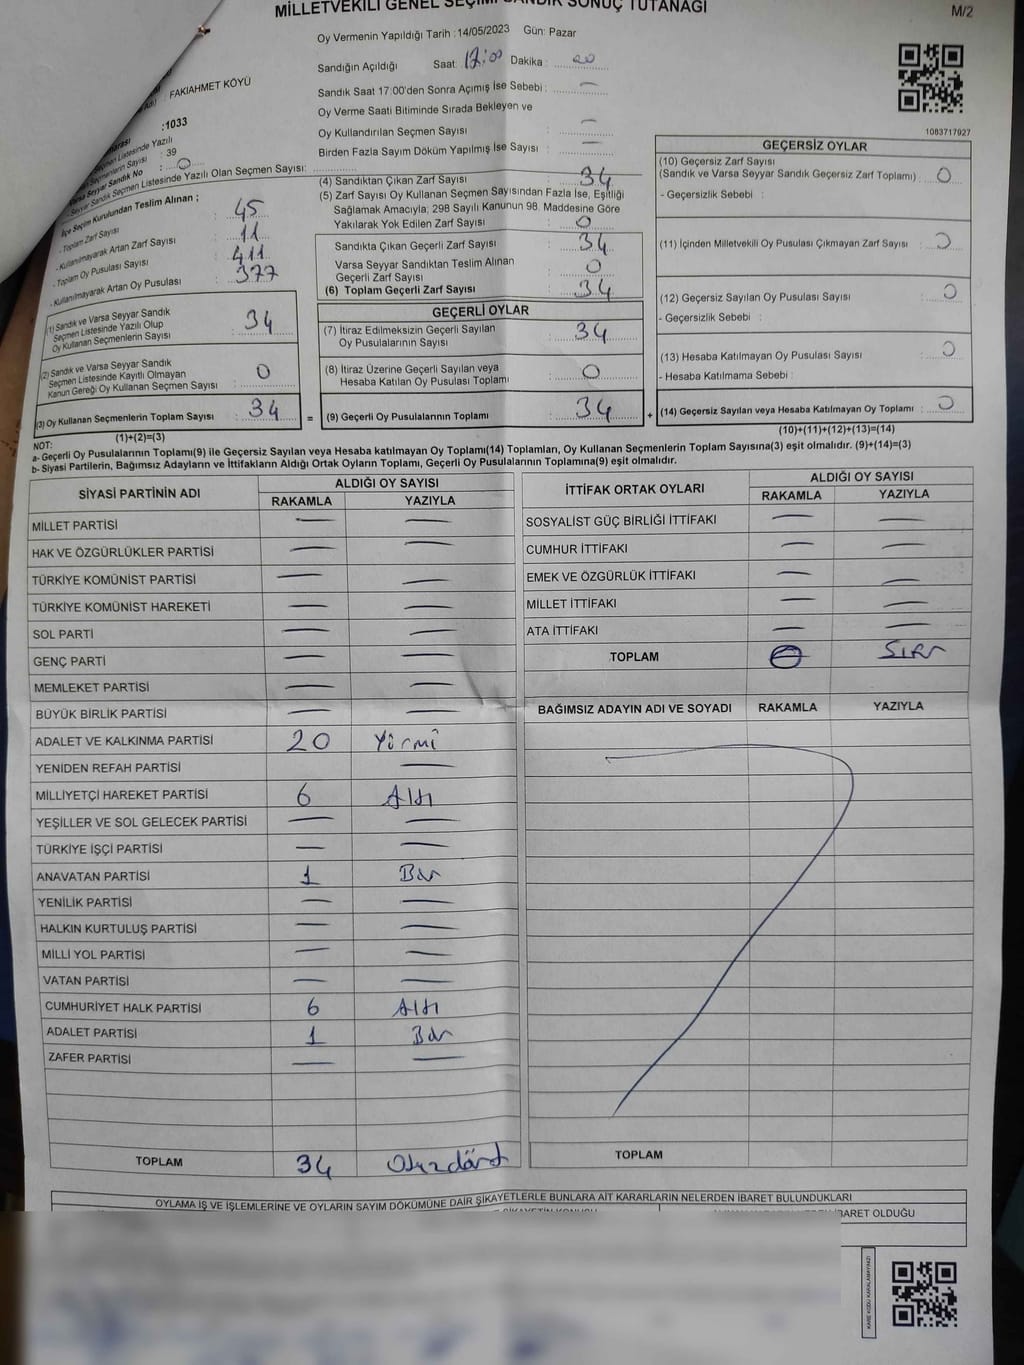 MİLLETVEKİLİ GENEL SEÇİMİ SANDIK SONUÇ TUTANAĞI
M/2
Oy Vermenin Yapıldığı Tarih :14/05/2023 Gün: Pazar
Sandığın Açıldığı Saat: Dakika :
Sandık Saat 17:00'den Sonra Açımış İse Sebebi :
Oy Verme Saati Bitiminde Sırada Bekleyen ve
Oy Kullandırılan Seçmen Sayısı :
Birden Fazla Sayım Döküm Yapılmış İse Sayısı :
FAKIAHMET KÖYÜ
:1033
Seçmen Listesinde Yazılı
Seçmenlerin Sayısı : 39
Varsa Seyyar Sandık No : 0
- Seyyar Sandık Seçmen Listesinde Yazılı Olan Seçmen Sayısı:
İlçe Seçim Kurulundan Teslim Alınan ;
- Toplam Zarf Sayısı : 45
- Kullanılmayarak Artan Zarf Sayısı : 11
- Toplam Oy Pusulası Sayısı : 411
- Kullanılmayarak Artan Oy Pusulası : 377
(1) Sandık ve Varsa Seyyar Sandık
Seçmen Listesinde Yazılı Olup
Oy Kullanan Seçmenlerin Sayısı : 34
(2) Sandık ve Varsa Seyyar Sandık
Seçmen Listesinde Kayıtlı Olmayan
Kanun Gereği Oy Kullanan Seçmen Sayısı : 0
(3) Oy Kullanan Seçmenlerin Toplam Sayısı : 34
(1)+(2)=(3)
(4) Sandıktan Çıkan Zarf Sayısı : 34
(5) Zarf Sayısı Oy Kullanan Seçmen Sayısından Fazla İse, Eşitliği
Sağlamak Amacıyla, 298 Sayılı Kanunun 98. Maddesine Göre
Yakılarak Yok Edilen Zarf Sayısı : 0
Sandıkta Çıkan Geçerli Zarf Sayısı : 34
Varsa Seyyar Sandıktan Teslim Alınan
Geçerli Zarf Sayısı : 0
(6) Toplam Geçerli Zarf Sayısı : 34
GEÇERLİ OYLAR
(7) İtiraz Edilmeksizin Geçerli Sayılan
Oy Pusulalarının Sayısı : 34
(8) İtiraz Üzerine Geçerli Sayılan veya
Hesaba Katılan Oy Pusulası Toplamı : 0
= (9) Geçerli Oy Pusulalarının Toplamı : 34 +
1083717927
GEÇERSİZ OYLAR
(10) Geçersiz Zarf Sayısı
(Sandık ve Varsa Seyyar Sandık Geçersiz Zarf Toplamı) : 0
- Geçersizlik Sebebi :
(11) İçinden Milletvekili Oy Pusulası Çıkmayan Zarf Sayısı : 0
(12) Geçersiz Sayılan Oy Pusulası Sayısı : 0
- Geçersizlik Sebebi :
(13) Hesaba Katılmayan Oy Pusulası Sayısı : 0
- Hesaba Katılmama Sebebi :
(14) Geçersiz Sayılan veya Hesaba Katılmayan Oy Toplamı : 0
(10)+(11)+(12)+(13)=(14)
NOT:
a- Geçerli Oy Pusulalarının Toplamı(9) ile Geçersiz Sayılan veya Hesaba katılmayan Oy Toplamı(14) Toplamları, Oy Kullanan Seçmenlerin Toplam Sayısına(3) eşit olmalıdır. (9)+(14)=(3)
b- Siyasi Partilerin, Bağımsız Adayların ve İttifakların Aldığı Ortak Oyların Toplamı, Geçerli Oy Pusulalarının Toplamına(9) eşit olmalıdır.
SİYASİ PARTİNİN ADI
ALDIĞI OY SAYISI
RAKAMLA YAZIYLA
MİLLET PARTİSİ — —
HAK VE ÖZGÜRLÜKLER PARTİSİ — —
TÜRKİYE KOMÜNİST PARTİSİ — —
TÜRKİYE KOMÜNİST HAREKETİ — —
SOL PARTİ — —
GENÇ PARTİ — —
MEMLEKET PARTİSİ — —
BÜYÜK BİRLİK PARTİSİ — —
ADALET VE KALKINMA PARTİSİ 20 Yirmi
YENİDEN REFAH PARTİSİ —
MİLLİYETÇİ HAREKET PARTİSİ 6 Altı
YEŞİLLER VE SOL GELECEK PARTİSİ — —
TÜRKİYE İŞÇİ PARTİSİ — —
ANAVATAN PARTİSİ 1 Bir
YENİLİK PARTİSİ — —
HALKIN KURTULUŞ PARTİSİ — —
MİLLİ YOL PARTİSİ — —
VATAN PARTİSİ — —
CUMHURİYET HALK PARTİSİ 6 Altı
ADALET PARTİSİ 1 Bir
ZAFER PARTİSİ — —
TOPLAM 34 Otuzdört
İTTİFAK ORTAK OYLARI
ALDIĞI OY SAYISI
RAKAMLA YAZIYLA
SOSYALİST GÜÇ BİRLİĞİ İTTİFAKI — —
CUMHUR İTTİFAKI — —
EMEK VE ÖZGÜRLÜK İTTİFAKI — —
MİLLET İTTİFAKI — —
ATA İTTİFAKI — —
TOPLAM 0 Sıfır
BAĞIMSIZ ADAYIN ADI VE SOYADI RAKAMLA YAZIYLA
TOPLAM
OYLAMA İŞ VE İŞLEMLERİNE VE OYLARIN SAYIM DÖKÜMÜNE DAİR ŞİKAYETLERLE BUNLARA AİT KARARLARIN NELERDEN İBARET BULUNDUKLARI
İBARET OLDUĞU
KARE KODU KARALAMAYINIZ!